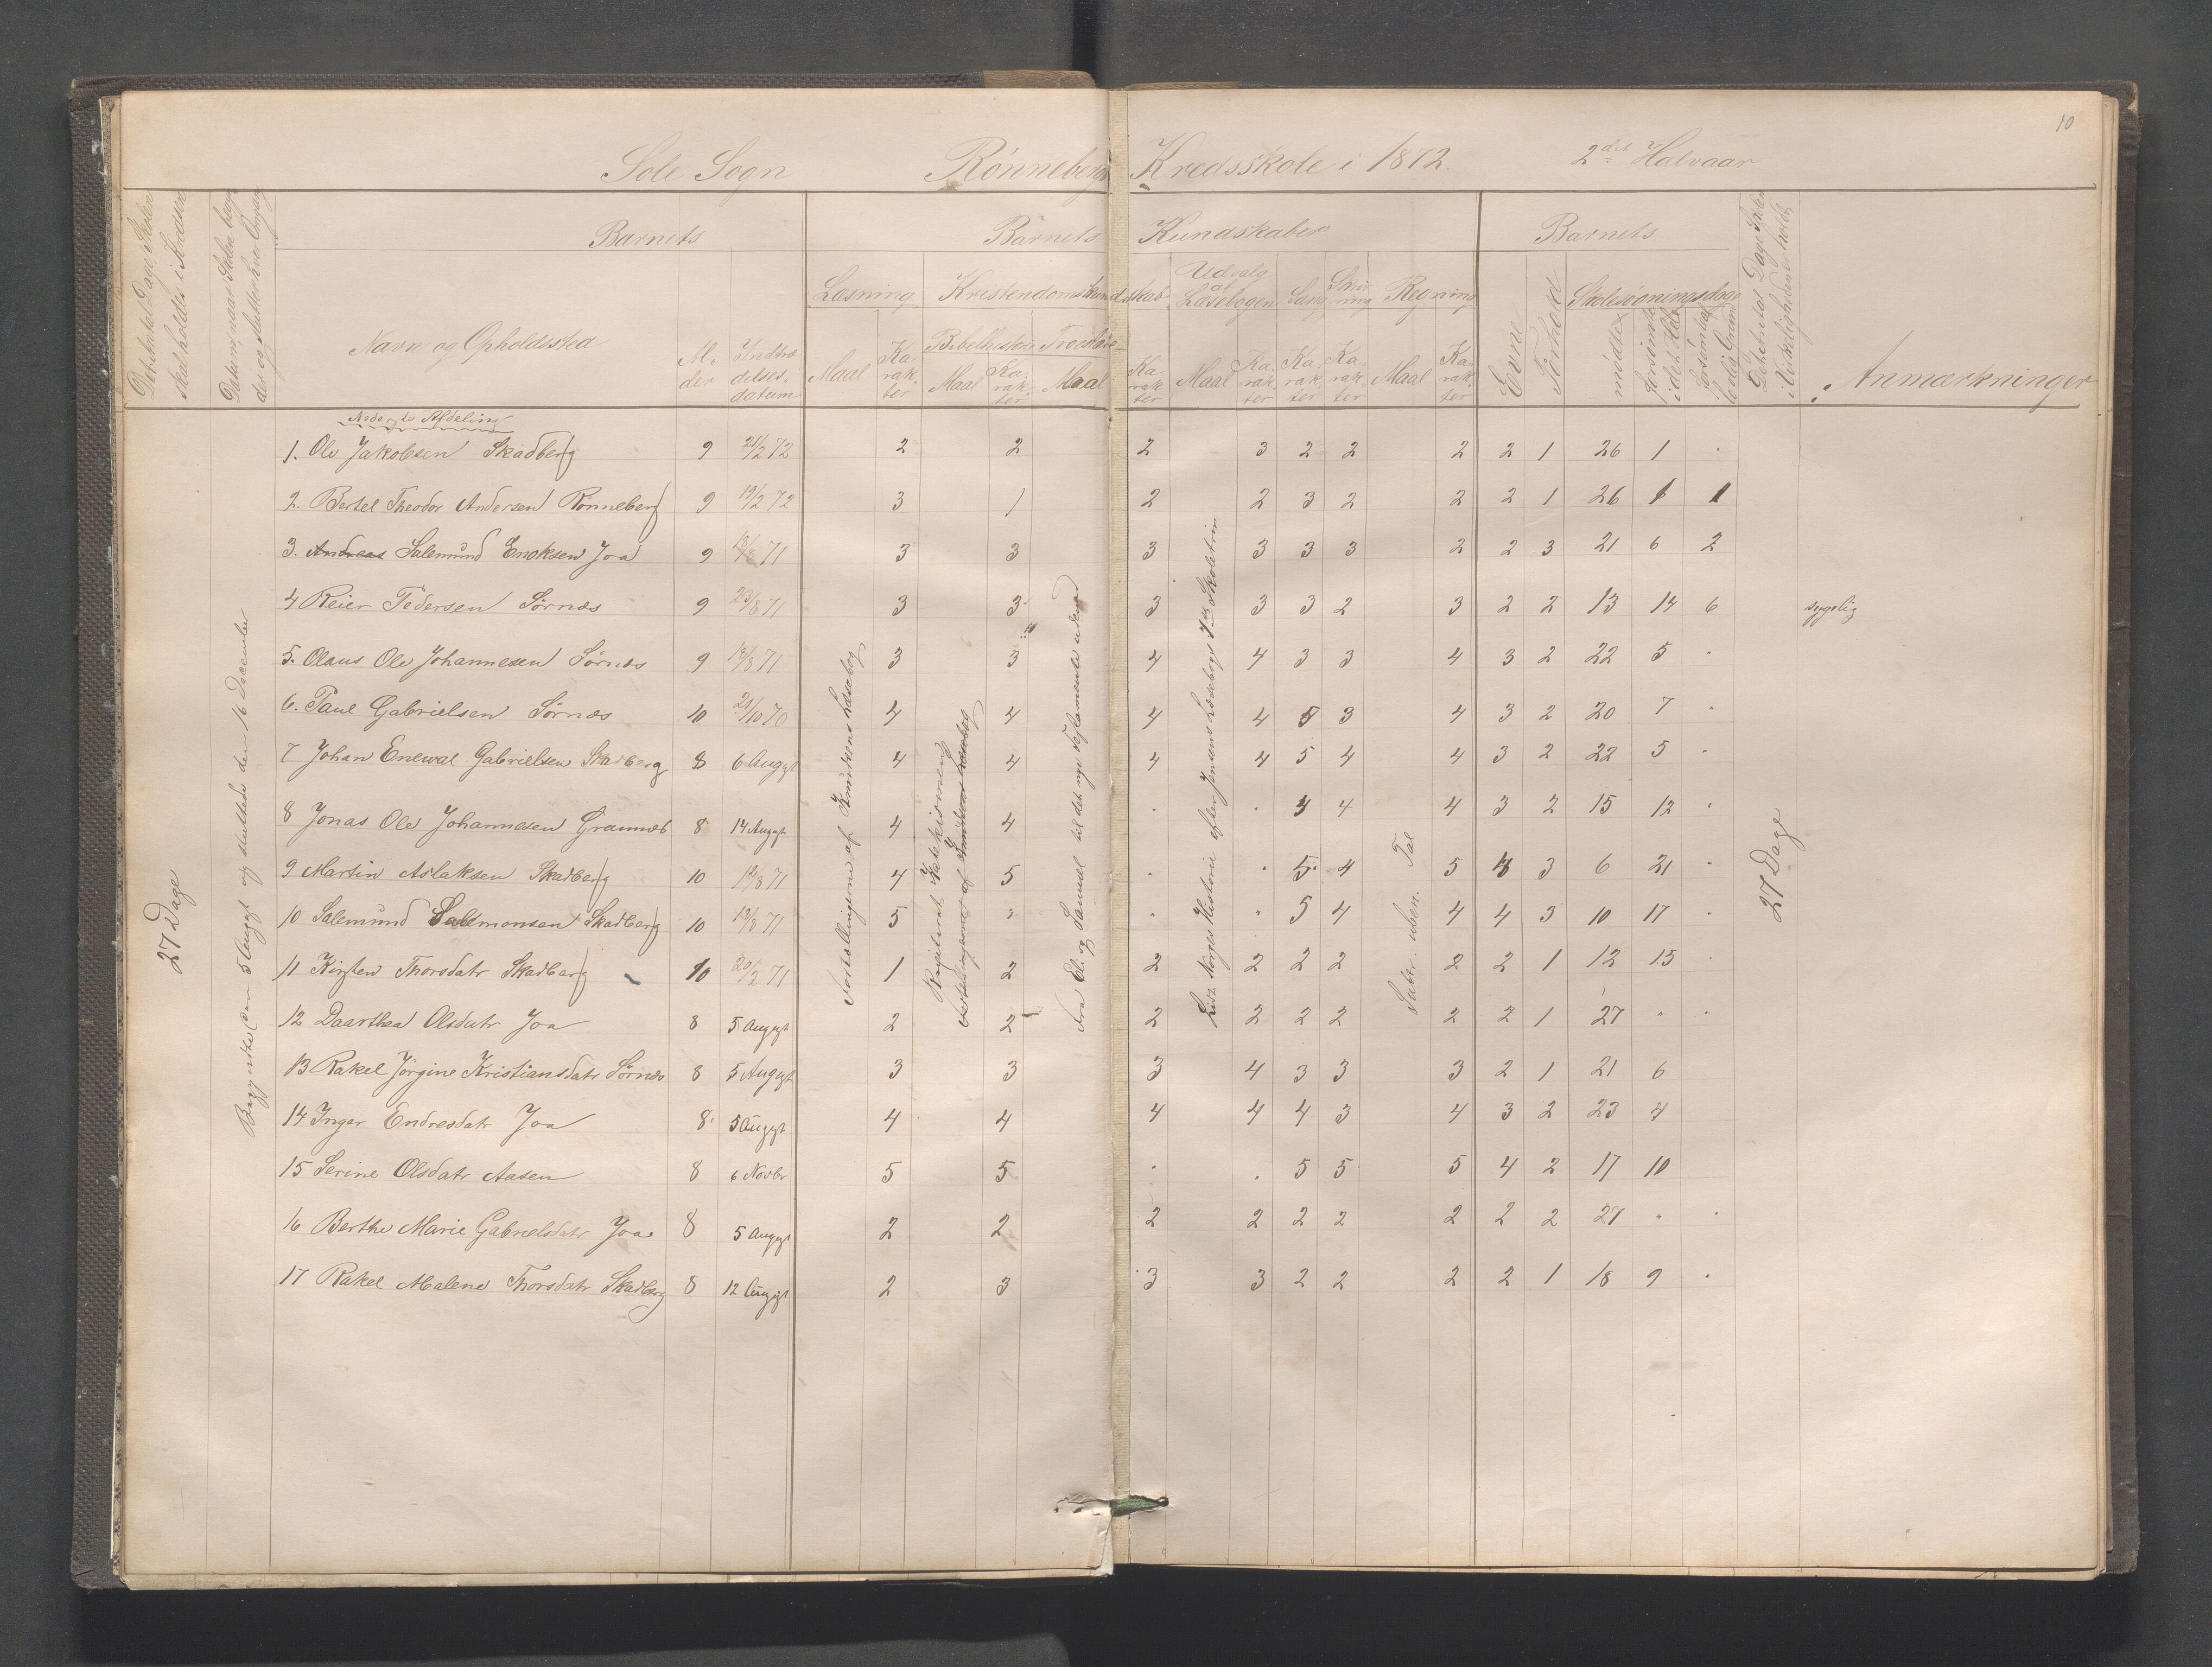 10
Sole Sogn Rønneberg Kredsskole i 1872. 2det Halvaar
Det Antal Dage, Skolen skal holdes i Kredsen
Datum, naar Skolen begynder og slutter hver Omgang
Barnets
Barnets Kundskaber
Barnets
Navn og Opholdssted
Alder
Indtrædelsesdatum
Læsning
Kristendomskundskab
Udvalg af Læsebogen
Sang
Skrivning
Regning
Bibelhistorie
Troeslære
Maal
Karakter
Maal
Karakter
Maal
Karakter
Maal
Karakter
Karakter
Karakter
Maal
Karakter
Evne
Forhold
Skolesøgningsdage
mødte
forsømte i det Hele
forsømte af lovlig Grund
Det Antal Dage, Skolen i Virkeligheden er holdt
Anmærkninger
Nederste Afdeling
1. Ole Jakobsen Skadberg 9 21/2 72 2 2 2 3 2 2 2 2 1 26 1 .
2. Bertel Theodor Andersen Rønneberg 9 19/2 72 3 1 2 2 3 2 2 2 1 26 1 1
3. Andreas Salemund Enoksen Joa 9 71 3 3 3 3 3 3 2 2 3 21 6 2
4 Reier Pedersen Sørnæs 9 23/8 71 3 3 3 3 3 2 3 2 2 13 14 6 sygelig
5. Olaus Ole Johannesen Sørnæs 9 71 3 3 4 4 3 3 4 3 2 22 5 .
6. Paul Gabrielsen Sørnæs 10 21/10 70 4 4 4 4 5 3 4 3 2 20 7 .
7 Johan Enewal Gabrielsen Skadberg 8 6 Augst 4 4 4 4 5 4 4 3 2 22 5 .
8 Jonas Ole Johannesen Grannæs 8 14 Augst 4 4 . . 4 4 3 2 15 12 .
9 Martin Aslaksen Skadberg 10 71 4 5 . . 5 4 5 3 6 21 .
10 Salemund Salemonsen Skadberg 10 71 5 " . " 5 4 4 4 3 10 17 .
11 Kirsten Thorsdatr Skadberg 10 20/2 71 1 2 2 2 2 2 2 2 1 12 15 .
12 Daarthea Olsdatr Joa 8 5 Augst 2 2 2 2 2 2 2 2 1 27 " .
13 Rakel Jørgine Kristiansdatr Sørnæs 8 5 Augst 3 3 3 4 3 3 3 2 1 21 6
14 Inger Endresdatr Joa 8 5 Augst 4 4 4 4 4 3 4 3 2 23 4
15 Serine Olsdatr Aasen 8 6 Novbr 5 5 . . 5 5 5 4 2 17 10
16 Berthe Marie Gabrielsdatr Joa 8 5 Augst 2 2 2 2 2 2 2 2 2 27 " .
17 Rakel Malene Thorsdatr Skadberg 8 12 Augst 2 3 3 3 2 2 2 2 1 18 9 .
27 Dage
Begyndte den 5 Augst og sluttede den 16 December
Fortællingerne af Knudsens Læsebog
Katekismen
Fra Eli og Samuel til det nye Testamente
Norges Historie efter Jensens Læsebogs Skoletrin
Subtr. uben. Tal
27 Dage